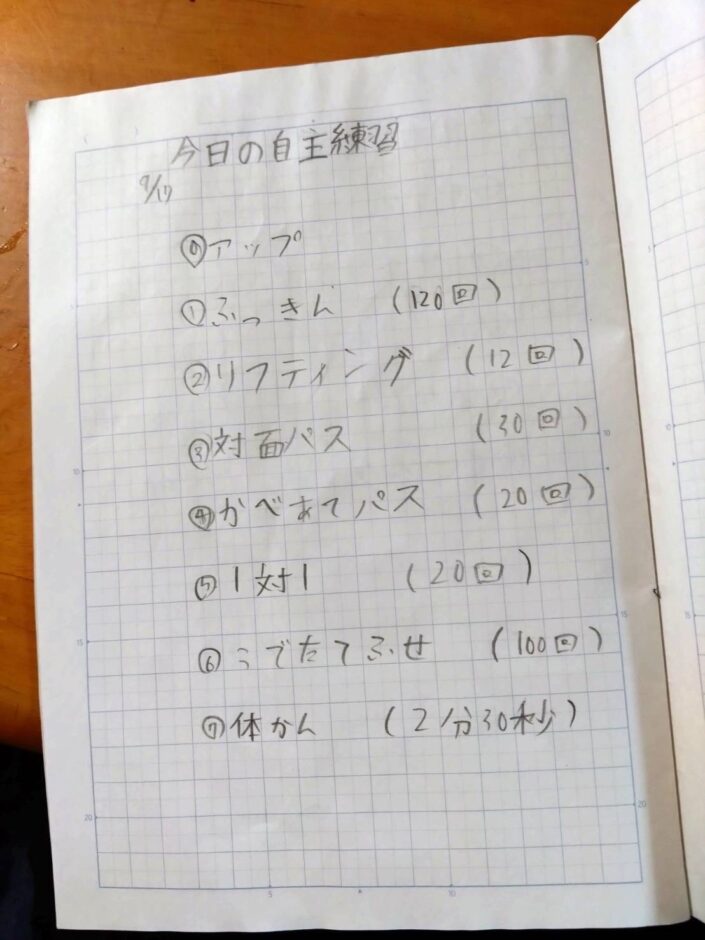 今日の自主練習
9/17
⓪アップ
①ふっきん (120回)
②リフティング (12回)
③対面パス (30回)
④かべあてパス (20回)
⑤1対1 (20回)
⑥うでたてふせ (100回)
⑦体かん (2分30秒)
5
10
15
20
5
10
5
10
15
20
5
15